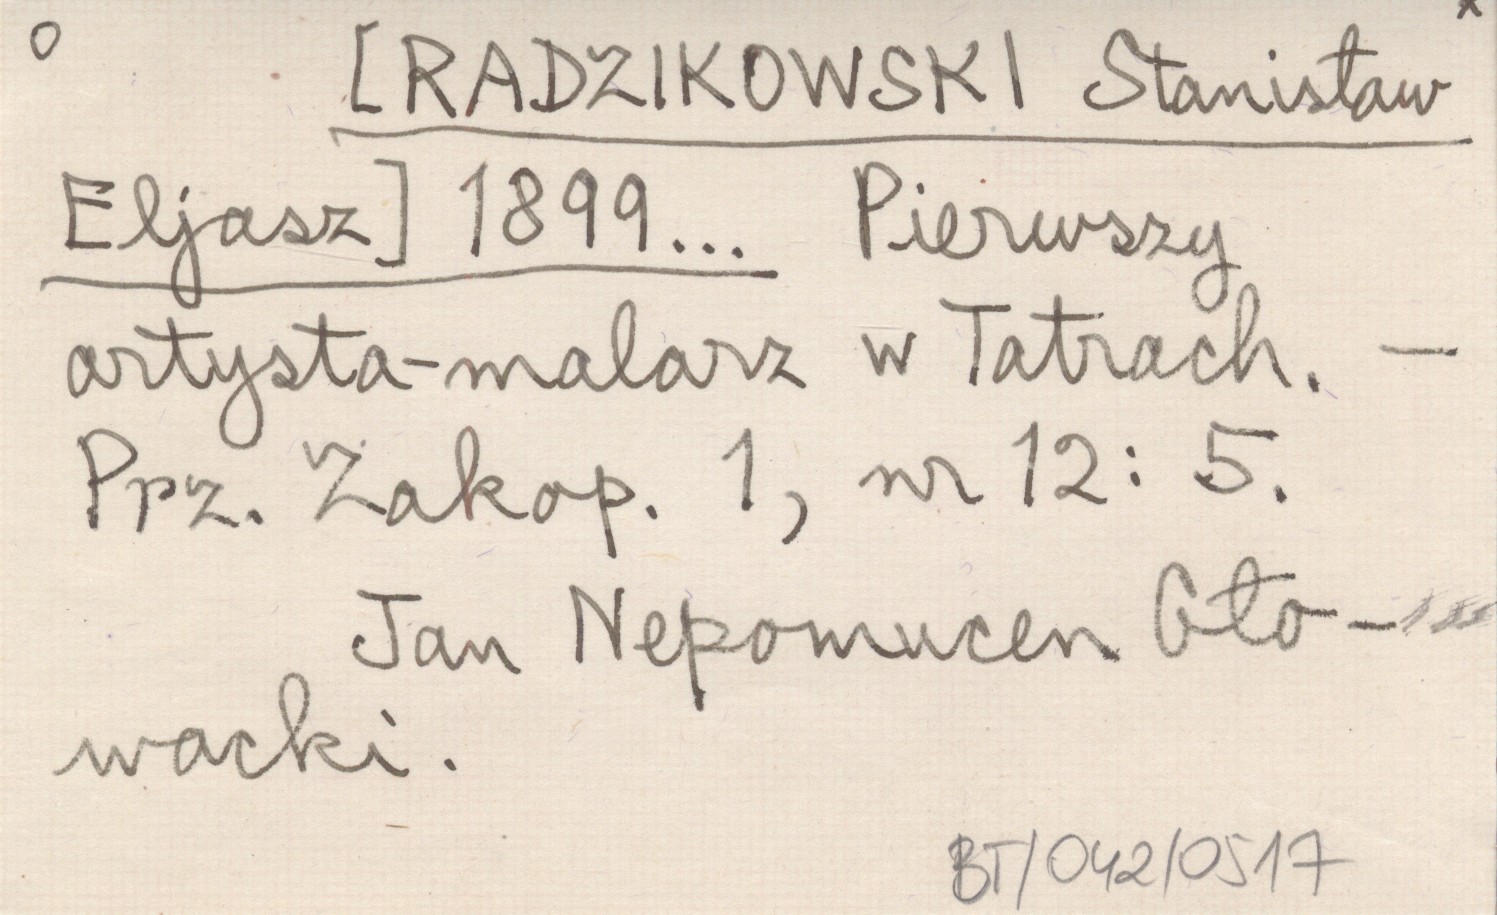 o x
[RADZIKOWSKI Stanisław
Eljasz] 1899... Pierwszy
artysta-malarz w Tatrach. —
Prz. Zakop. 1, nr 12: 5.
Jan Nepomucen Gło-
wacki.
BT/042/0517